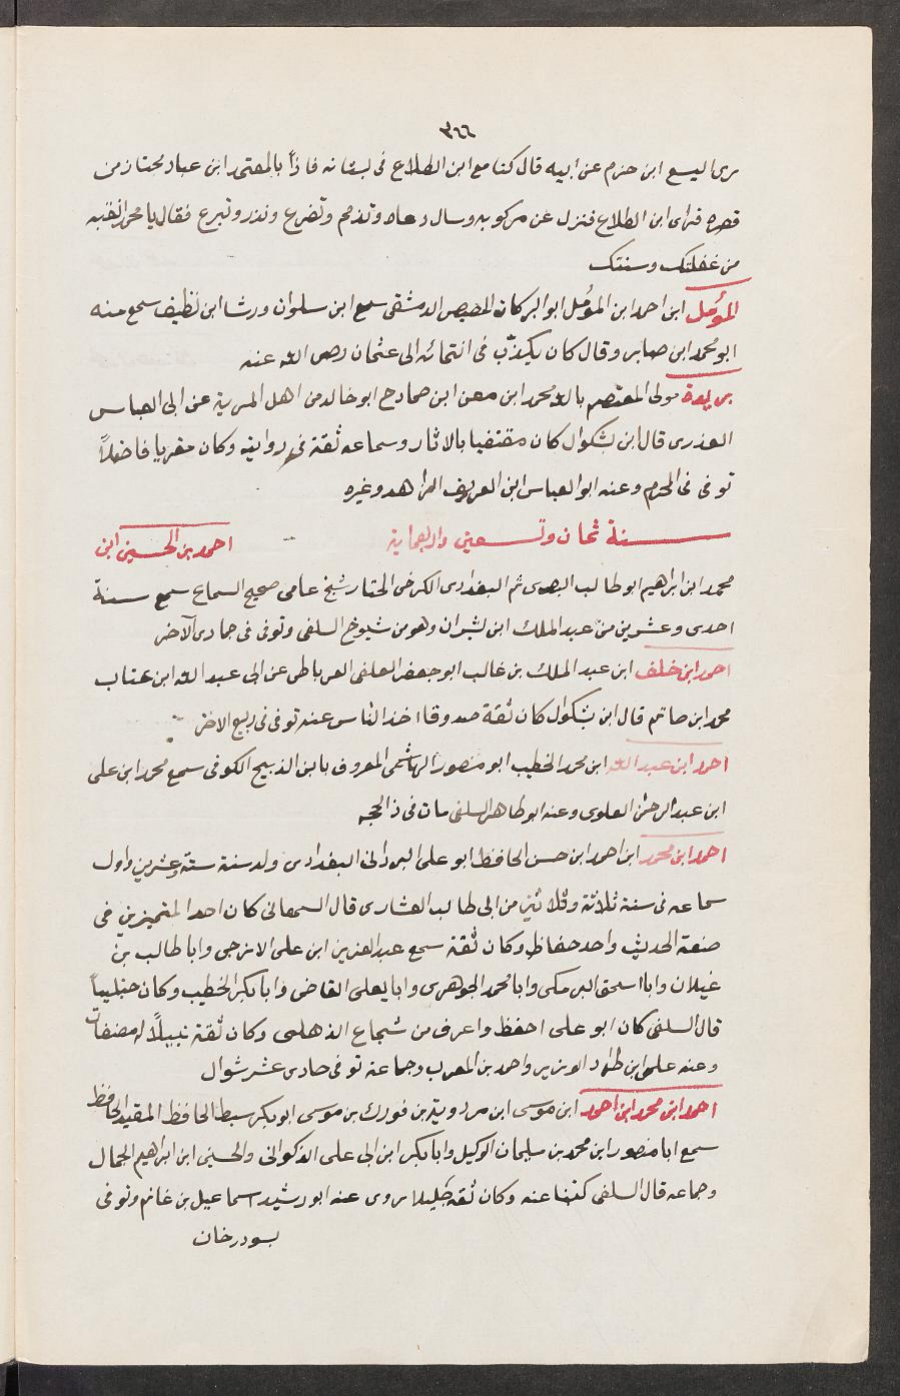 ٣٦٦
اليسع ابن حزم عن ابيه قال كنا مع ابن الطلاع فى بستانه فاذاً بالمعتمد ابن عباد مجتاز من
قصره فراى ابن الطلاع فنزل عن مركوبه وسال دعاه وتذمم وتضرع ونذر وتبرع فقال يا محمد انتبه
من غفلتك وسنتك
المؤمل ابن احمد ابن المؤمل ابو البركات المصيصى الدمشقى سمع ابن سلوان ورشا ابن نظيف سمع منه
ابو محمد ابن صابر وقال كان يكذب فى انتمائه الى عثمان رضى الله عنه
مولى المعتصم بالله محمد ابن معن ابن صمادح ابو خالد من اهل المرية عن ابى العباس
العذرى قال ابن بشكوال كان مقتفيا بالاثار وسماعه ثقة فى روايته وكان مقريا فاضلاً
توفى فى المحرم وعنه ابو العباس ابن العريف الزاهد وغيره
سنة ثمان وتسعين واربعماية احمد بن الحسين ابن
محمد ابن ابراهيم ابو طالب البصرى ثم البغدادى الكرخى شيخ عامى صحيح السماع سمع سنة
احدى وعشرين من عبد الملك ابن بشران وهو من شيوخ السلفى وتوفى فى جمادى الآخر
احمد ابن خلف ابن عبد الملك بن غالب ابو جعفر عن ابى عبد الله ابن عتاب
محمد ابن حاتم قال ابن بشكوال كان ثقة صدوقا اخذ الناس عنه توفى فى ربيع الاخر
احمد ابن عبد الله ابن محمد الخطيب ابو منصور الهاشمى المعروف بابن الذبيح الكوفى سمع محمد ابن على
ابن عبد الرحمن العلوى وعنه ابو طاهر السلفى مات فى ذالحجه
احمد ابن محمد ابن احمد ابن حسن الحافظ ابو على البردانى البغدادى ولد سنة ستة وعشرين واول
سماعه فى سنة ثلاثة وثلاثين من ابى طالب العشارى قال السمعانى كان احد المتميزين فى
صنعة الحديث واحد حفاظه وكان ثقة سمع عبد العزيز ابن على الازجى وابا طالب بن
غيلان وابا اسحق البرمكى وابا محمد الجوهرى وابا يعلى القاضى وابا بكر الخطيب وكان حنبلياً
قال السلفى كان ابو على احفظ واعرف من شجاع الذهلى وكان ثقة نبيلاً له مصنفات
وعنه على ابن طراد الوزير واحمد بن المقرب وجماعة توفى حادى عشر شوال
احمد ابن محمد ابن احمد ابن موسى ابن مردويه بن فورك بن موسى ابو بكر سبط الحافظ المفيد الحافظ
سمع ابا منصور ابن محمد بن سليمان الوكيل وابا بكر ابن ابى على الذكوانى والحسين ابن ابراهيم الجمال
وجماعه قال السلفى كتبنا عنه وكان ثقة جليلا روى عنه ابو رشيد اسماعيل بن غانم وتوفى
بسودرخان